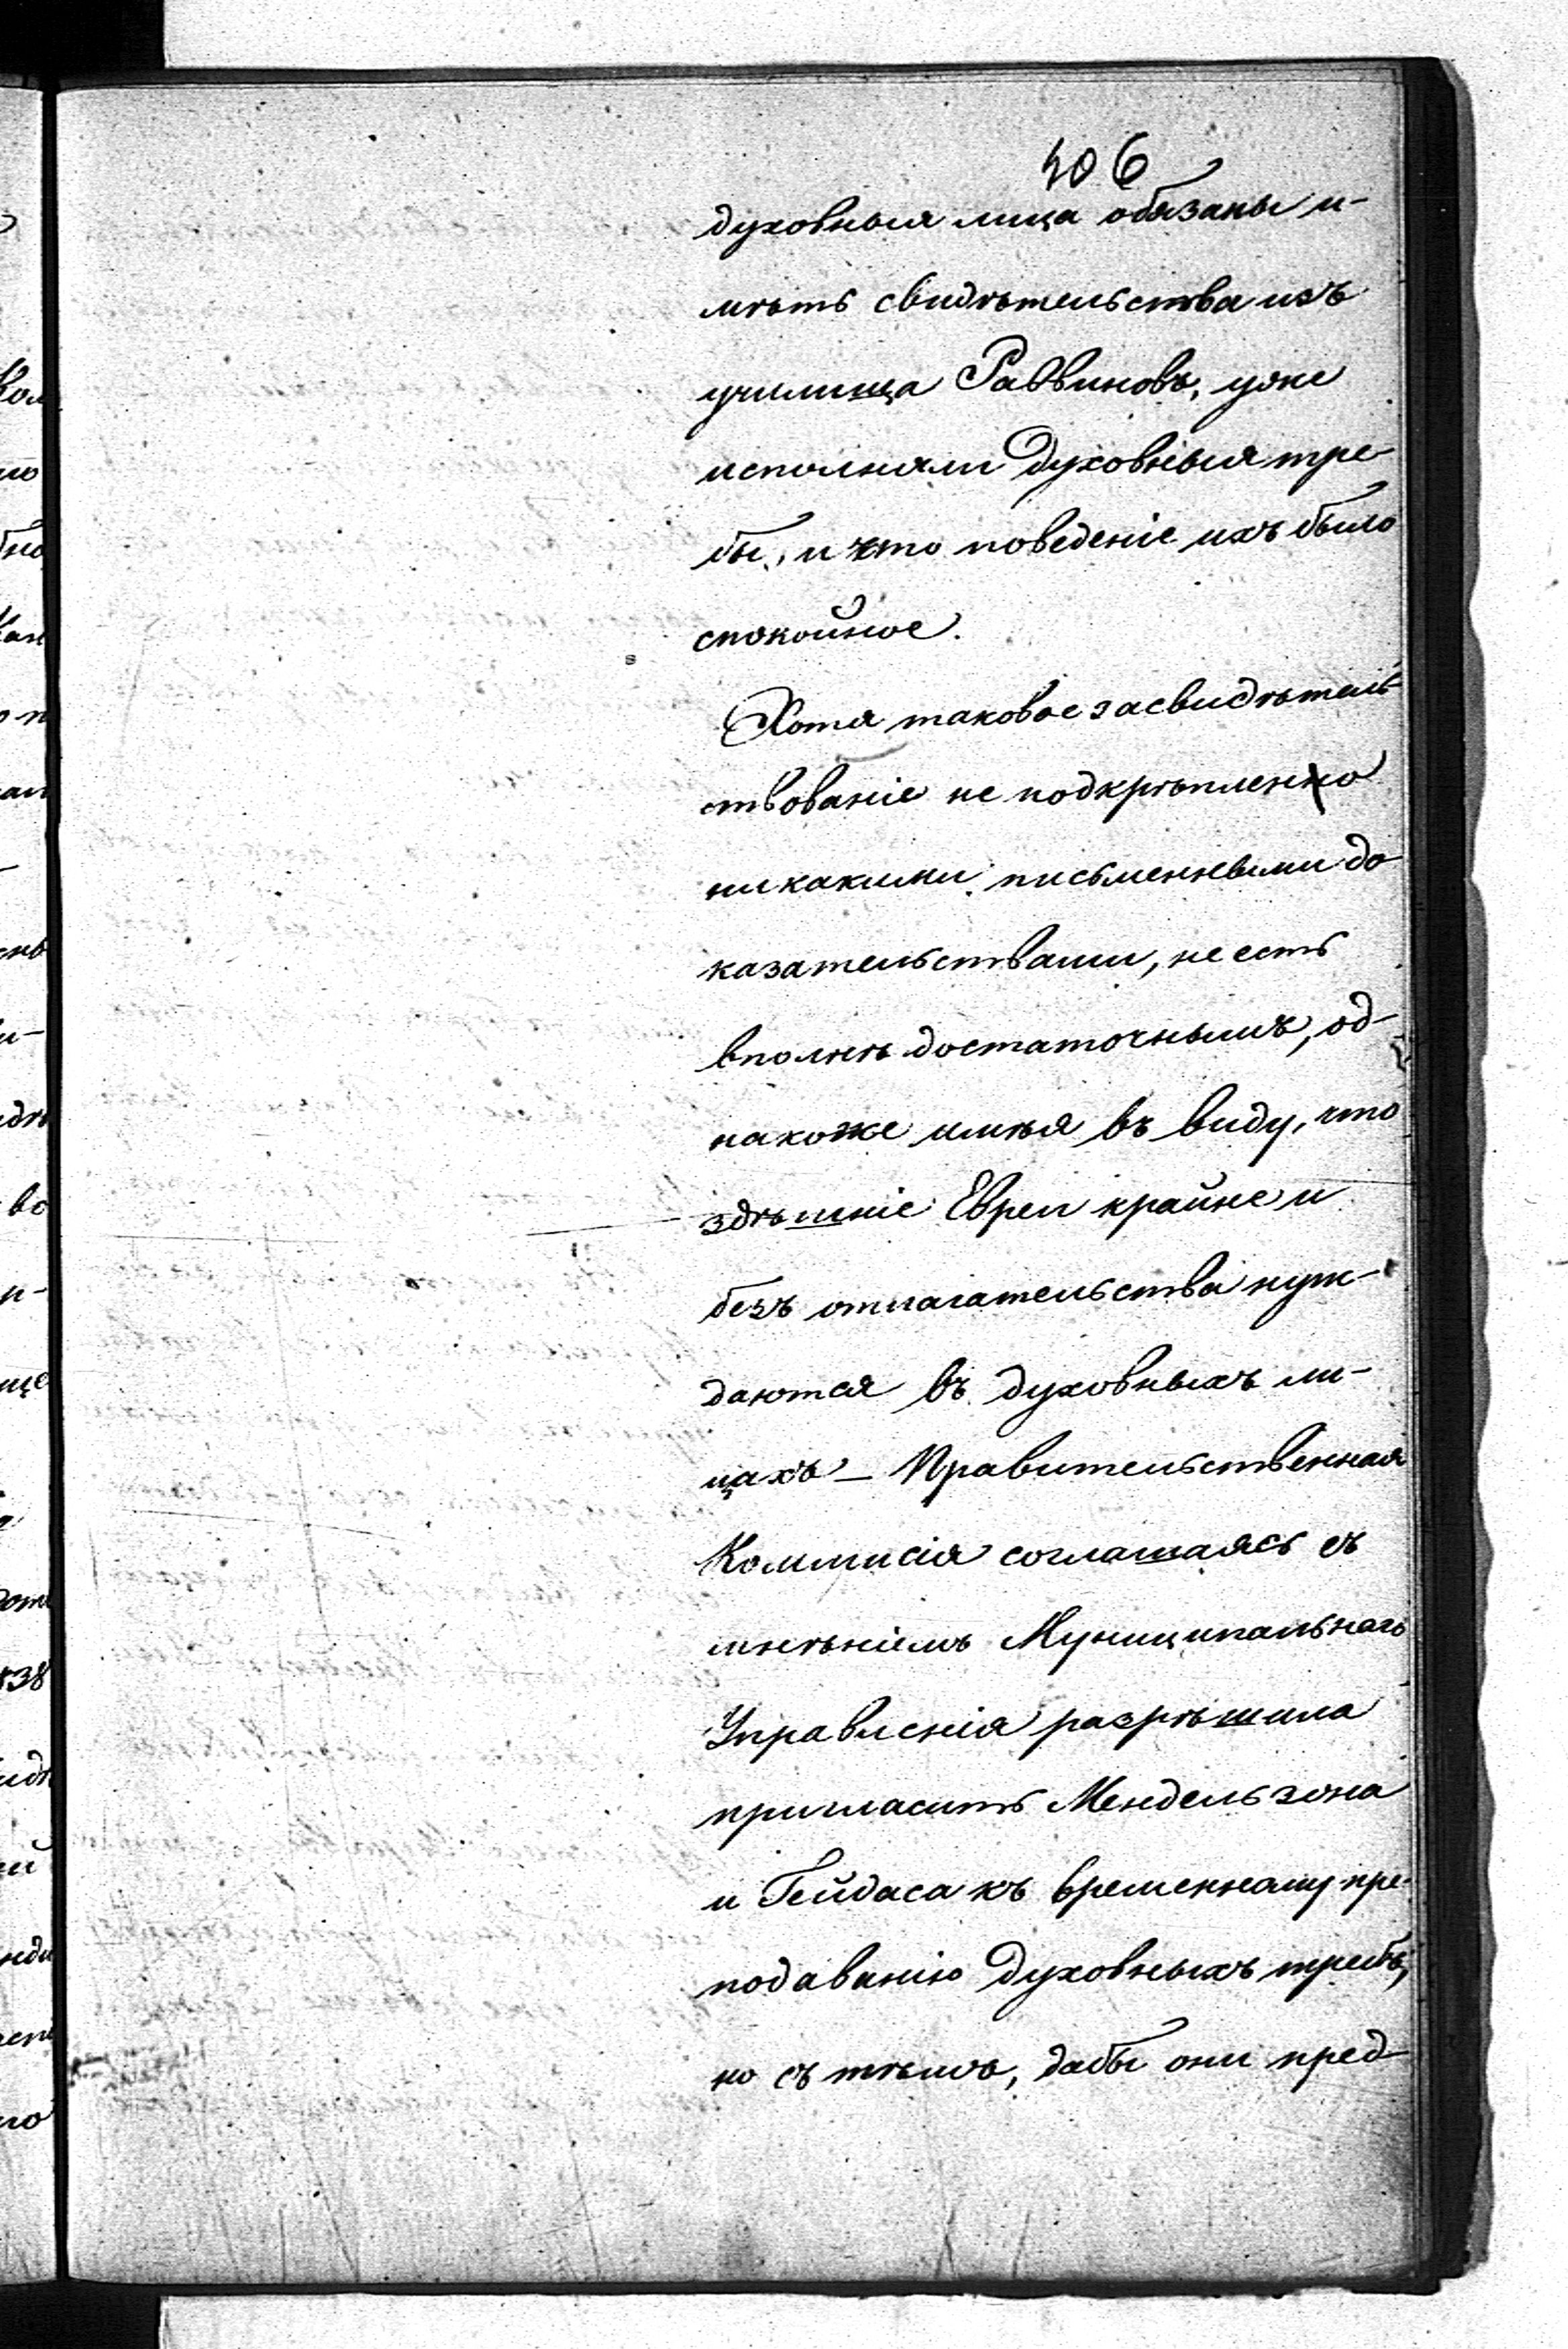 406
духовныя лица обязаны и-
мѣть свидѣтельства изъ
училища Раввиновъ, уже
исполняли духовныя тре-
бы, и что поведеніе ихъ было
спокойное.
Хотя таковое засвидѣтель-
ствованіе не подкрѣпленно
никакими письменными до-
казательствами, не есть
вполнѣ достаточнымъ, од-
накоже имѣя въ виду, что
здѣшніе Евреи крайне и
безъ отлагательства нуж-
даются въ духовныхъ ли-
цахъ — Правительственная
Коммисія соглашаясь съ
мнѣніемъ Муниципальнаго
Управленія разрѣшила
пригласить Мендельзона
и Гейдаса къ временному пре-
подаванію духовныхъ требъ,
но съ тѣмъ, дабы они пред-